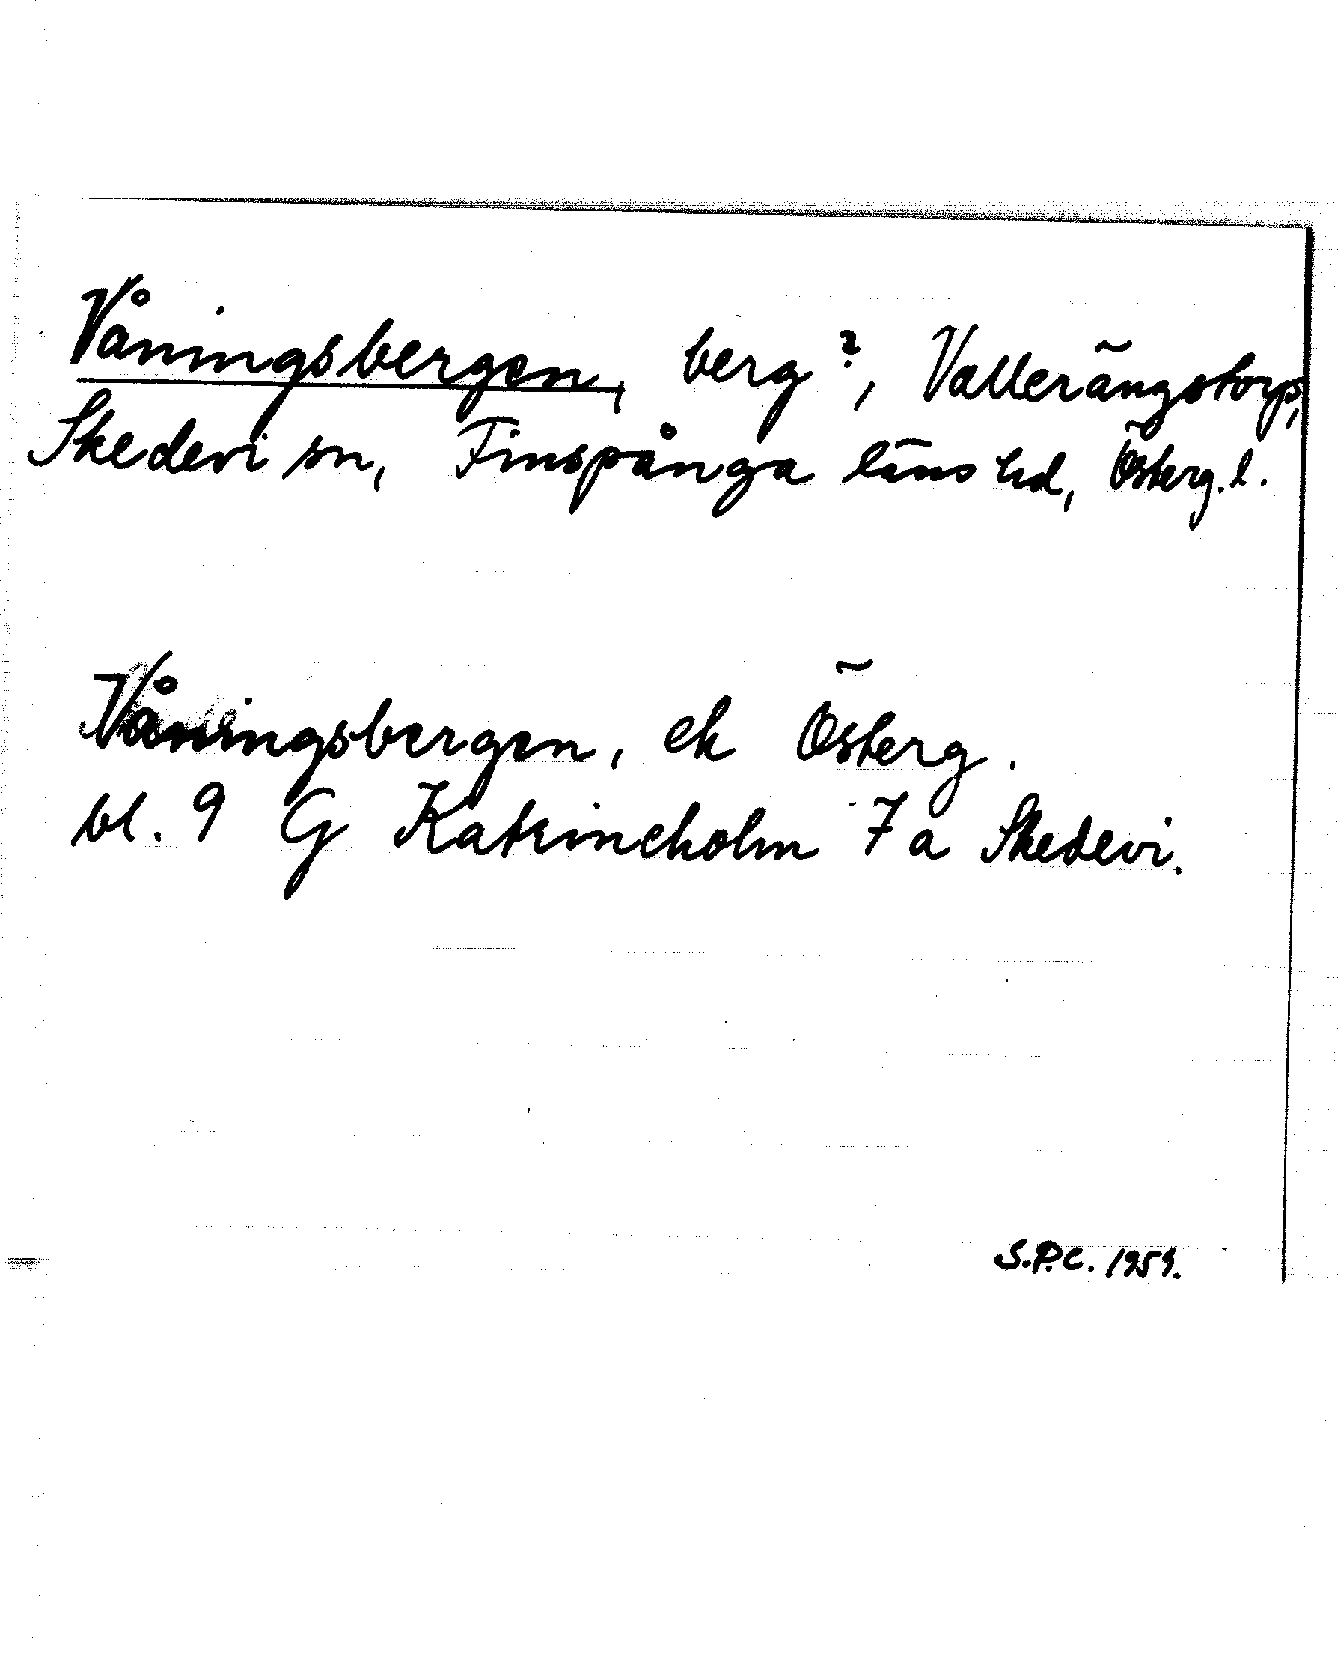 Våningsbergen, berg?, Vallerängstorp,
Skedevi sn, Finspånga läns hd, Österg. l.
Våningsbergen, ek Österg.
bl. 9 G Katrineholm 7 a Skedevi.
S.P.C. 1959.